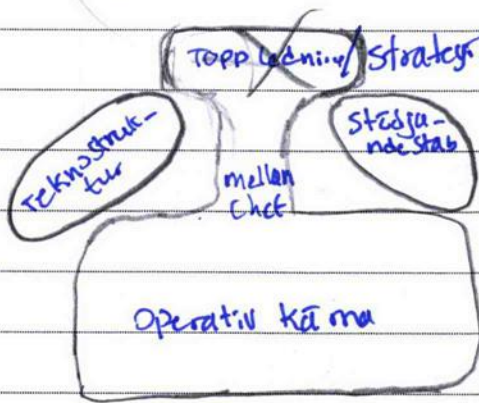 Topp ledning/ Strategi
Teknostruk-
tur
Stödja-
ndestab
mellan
Chef
Operativ kärna